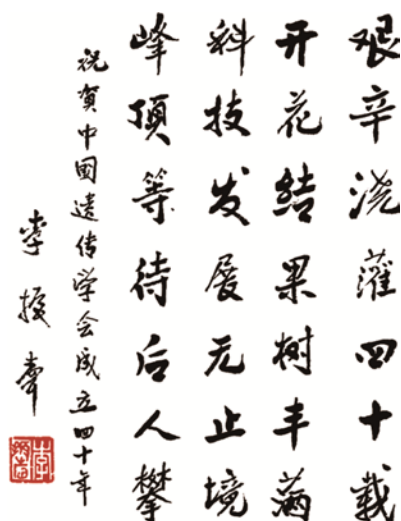 艰辛浇灌四十载
开花结果树丰满
科技发展无止境
峰顶等待后人攀
祝贺中国遗传学会成立四十年
李振声